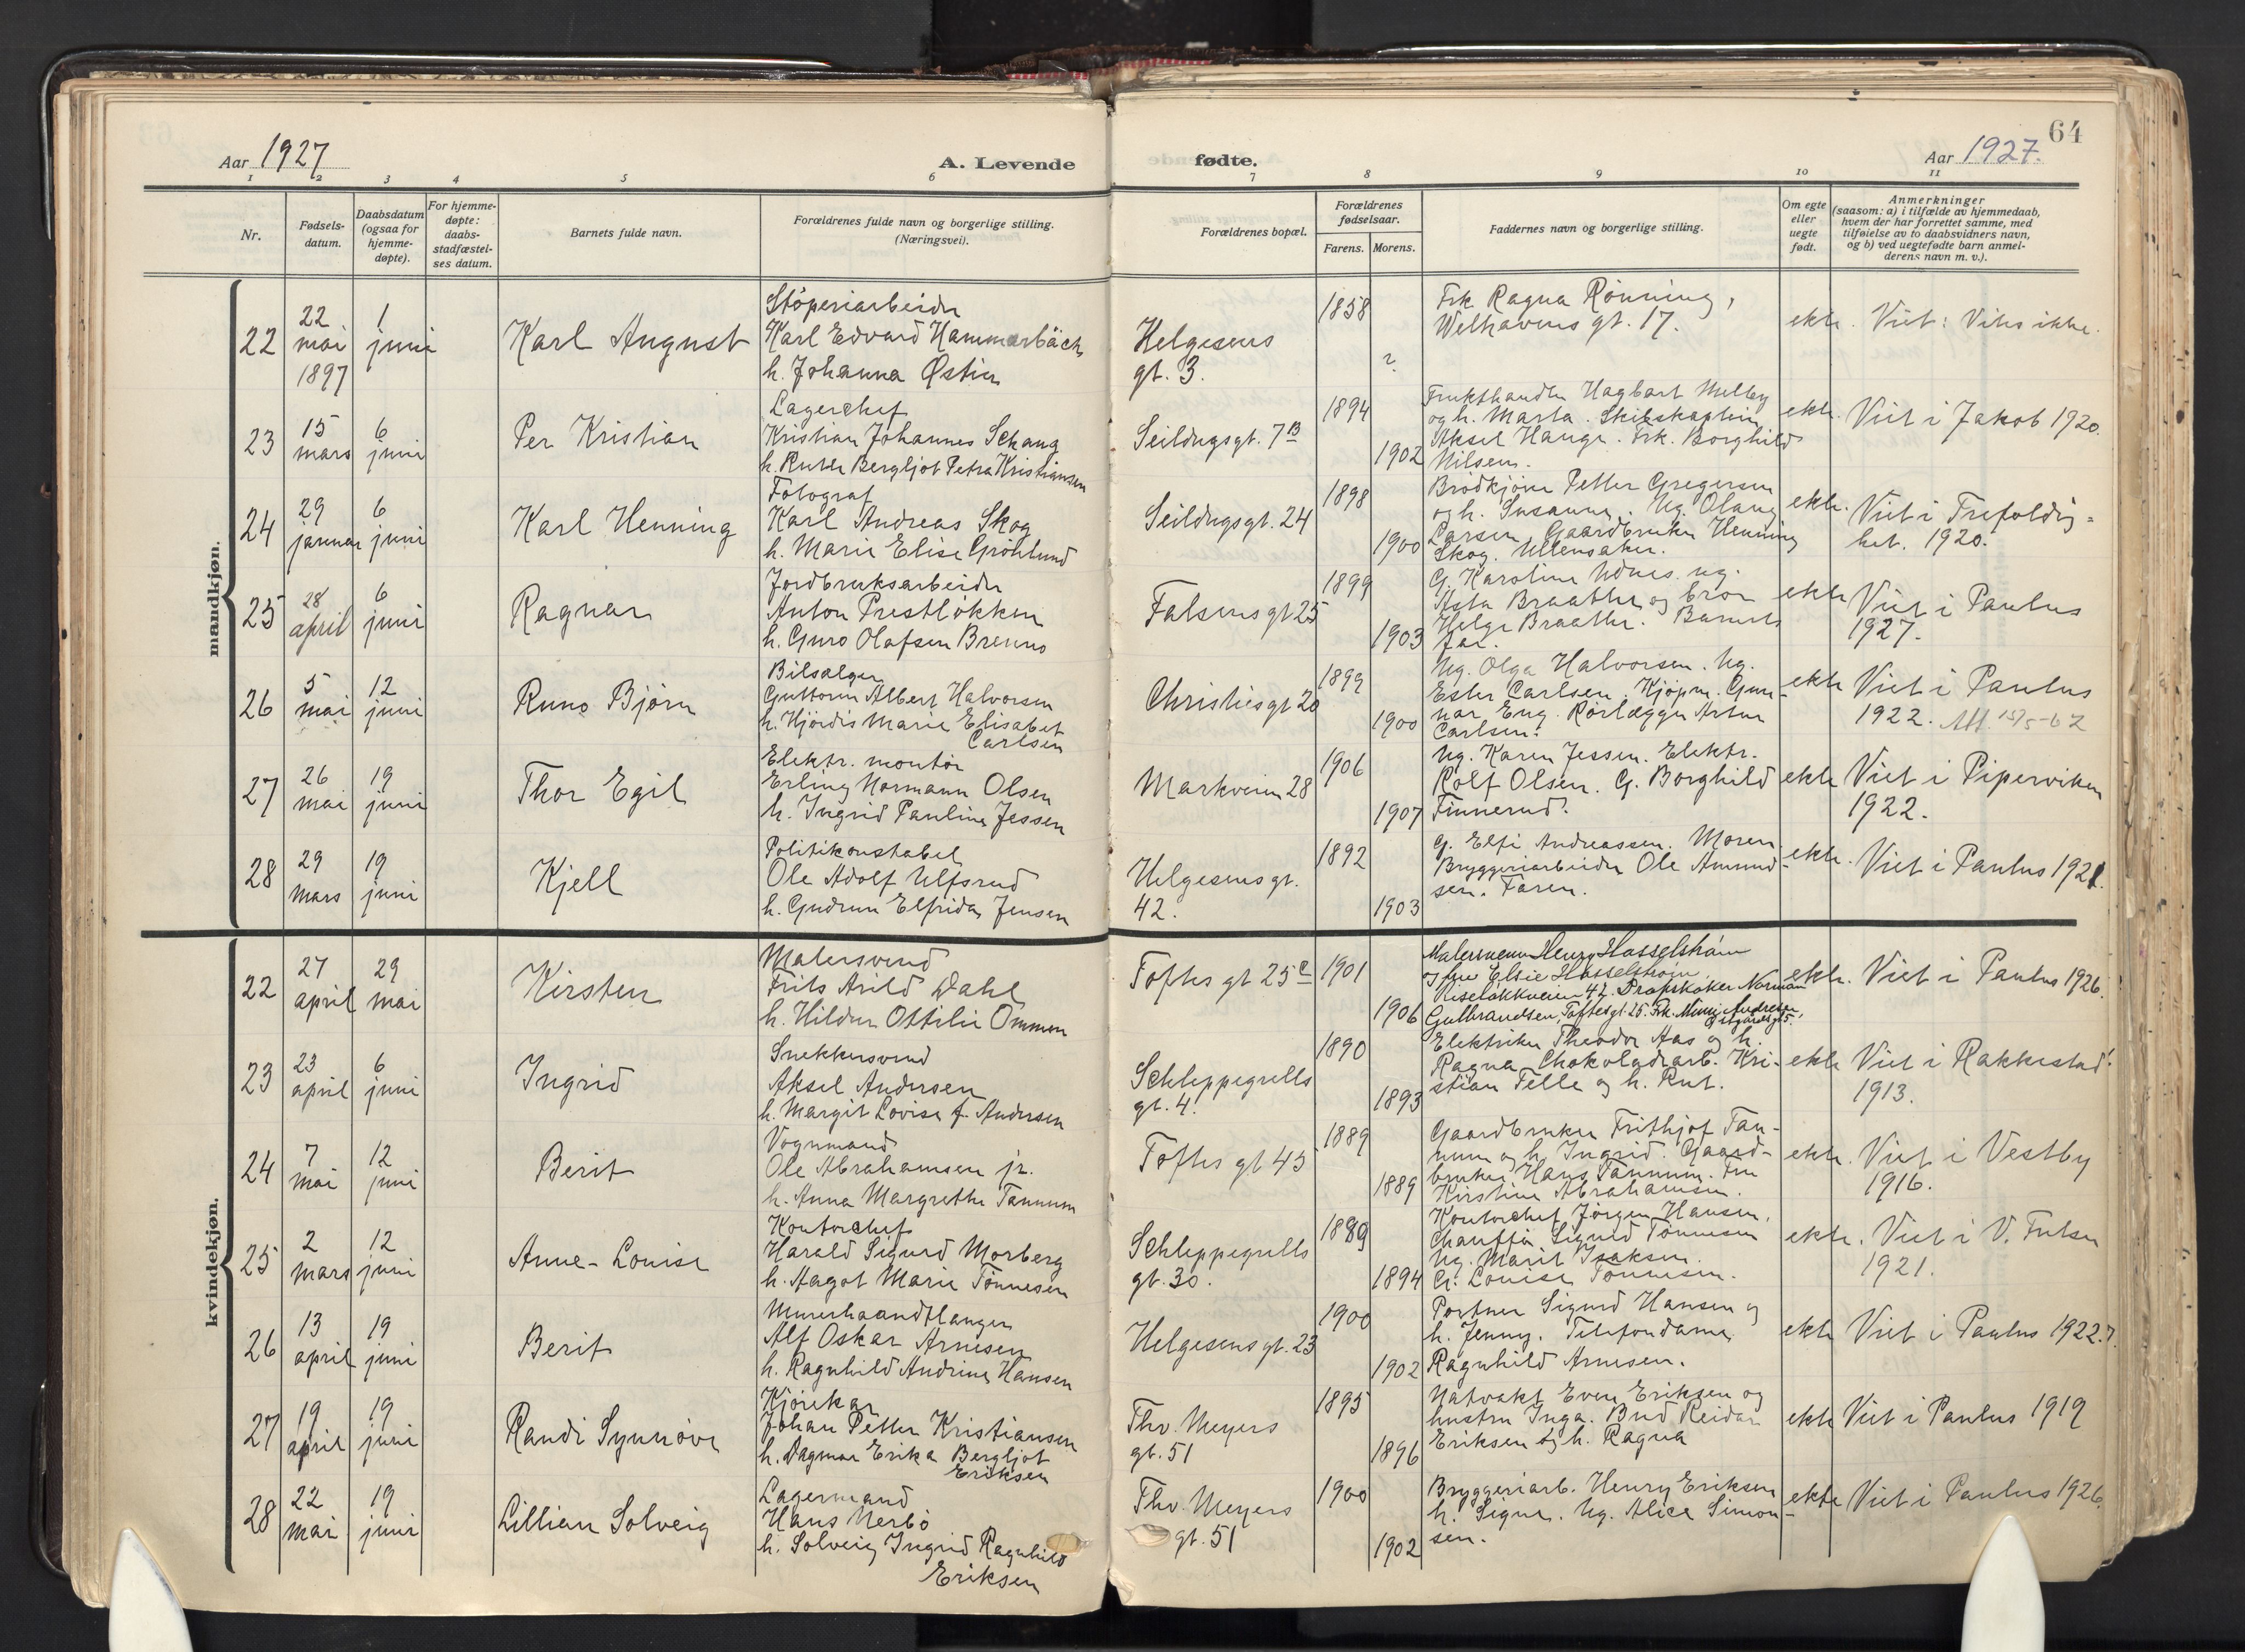 64
Aar 1927
A. Levende
fødte.
Aar 1927.
1 2 3 4 5 6 7 8 9 10 11
Nr.
Fødsels-
datum.
Daabsdatum
(ogsaa for
hjemme-
døpte).
For hjemme-
døpte:
daabs-
stadfæstel-
ses datum.
Barnets fulde navn.
Forældrenes fulde navn og borgerlige stilling.
(Næringsvei).
Forældrenes bopæl.
Forældrenes
fødselsaar.
Farens. Morens.
Faddernes navn og borgerlige stilling.
Om egte
eller
uegte
født.
Anmerkninger
(saasom: a) i tilfælde av hjemmedaab,
hvem der har forrettet samme, med
tilføielse av to daabsvidners navn,
og b) ved uegtefødte barn anmel-
derens navn m. v.).
mandkjøn.
22
22
mai
1897
1
juni
Karl August
Støperiarbeider
Karl Edvard Hammarbäck
h. Johanna Østin
Helgesens
gt. 3.
1858
?
Frk. Ragna Rönning,
Welhavens gt. 17.
ekte. Viet: Vites ikke.
23
15
mars
6
juni
Per Kristian
Lagerchef
Kristian Johannes Schaug
h. Ruth Bergljot Petra Kristiansen
Seildugsgt. 7B
1894
1902
Frukthandler Hagbart Melby
og h. Marta. Skibskaptein
Aksel Hauge. Frk. Borghild
Nilsen.
ekte. Viet i Jakob 1920.
24
29
januar
6
juni
Karl Henning
Fotograf
Karl Andreas Skog
h. Marie Elise Gröhlund
Seildugsgt. 24
1898
1900
Brødkjører Petter Gregersen
og h. Susanne. Ug. Olaug
Larsen. Gaardbruker Henning
Skog. Ullensaker.
ekte. Viet i Trefoldig-
het. 1920.
25
28
april
6
juni
Ragnar
Jordbruksarbeider
Anton Prestløkken
h. Guro Olafsen Brenno
Falsensgt 25
1899
1903
G. Karoline Udnes. ug.
Asta Braathe og bror
Helge Braathe. Barnets
far.
ekte Viet i Paulus
1927.
26
5
mai
12
juni
Runo Bjørn
Bilsælger
Guttorm Albert Halvorsen
h. Hjördis Marie Elisabet
Carlsen
Christiesgt 20
1899
1900
Ug. Olga Halvorsen. Ug.
Ester Carlsen. Kjøpm. Gun-
nar Eng. Rörlægger Artur
Carlsen.
ekte Viet i Paulus
1922. Att. 15/5-62
27
26
mai
19
juni
Thor Egil
Elektr. montör
Erling Normann Olsen
h. Ingrid Pauline Jessen
Markveien 28
1906
1907
Ug. Karen Jessen. Elektr.
Rolf Olsen. G. Borghild
Finnerud.
ekte Viet i Piperviken
1922.
28
29
mars
19
juni
Kjell
Politikonstabel
Ole Adolf Ulfsrud
h. Gudrun Elfrida Jensen
Helgesens gt.
42.
1892
1903
G. Elfi Andreassen. Moren.
Bryggeriarbeider Ole Amund-
sen. Faren.
ekte. Viet i Paulus 1921.
kvindekjøn.
22
27
april
29
mai
Kirsten
Malersvend
Frits Arild Dahl
h. Hildur Ottilie Ommen
Toftes gt 25c
1901
1906
Henry Hasselström
og fru Elsie Hasselström,
Riseløkkveien 42. Normann
Gulbrandsen, Toftesgt. 25. Frk. Mimi Andresen,
ekte. Viet i Paulus 1926.
23
23
april
6
juni
Ingrid
Snekkersvend
Aksel Andersen
h. Margit Lovise f. Andersen
Schleppegrells
gt. 4.
1890
1893
Elektriker Theodor Aas og h.
Ragna. Chokoladearb. Kri-
stian Telle og h. Rut.
ekte Viet i Rakkestad
1913.
24
7
mai
12
juni
Berit
Vognmand
Ole Abrahamsen jr.
h. Anna Margrethe Tannum
Toftes gt 45
1889
1889
Gaardbruker Frithjof Tan-
num og h. Ingrid. Gaard-
bruker Hans Tannum. Fru
Kirstine Abrahamsen.
ekte. Viet i Vestby
1916.
25
2
mars
12
juni
Anne-Louise
Kontorchef
Harald Sigurd Morberg
h. Aagot Marie Tönnesen
Schleppegrells
gt. 30.
1889
1894
Kontorchef Jörgen Hansen.
Chauffør Sigurd Tönnesen
Ug. Marit Isaksen.
G. Louise Tönnesen.
ekte. Viet i V. Frelser
1921.
26
13
april
19
juni
Berit
Murerhaandlanger
Alf Oskar Arnesen
h. Ragnhild Andrine Hansen
Helgesensgt. 23
1900
1902
Portner Sigurd Hansen og
h. Jenny. Telefondame
Ragnhild Arnesen.
ekte Viet i Paulus 1922.
27
19
april
19
juni
Randi Synnöve
Kjörekar
Johan Petter Kristiansen
h. Dagmar Erika Bergljot
Eriksen
Thv. Meyers
gt. 51
1895
1896
Natvakt Even Eriksen og
hustru Inga. Bud Reidar
Eriksen og h. Ragna
ekte Viet i Paulus 1919
28
22
mai
19
juni
Lillian Solveig
Lagermand
Hans Nerbö
h. Solveig Ingrid Ragnhild
Eriksen
Thv. Meyers
gt. 51
1900
1902
Bryggeriarb. Henry Eriksen
h. Signe. Ug. Alice Simon-
sen.
ekte Viet i Paulus 1926.